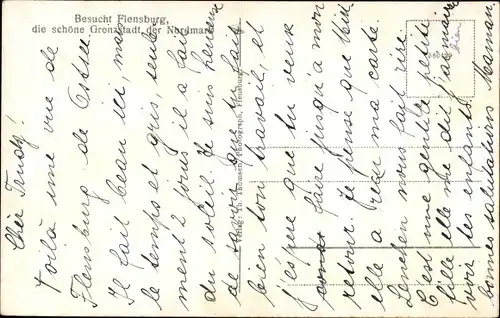 Besucht Flensburg,
die schöne Grenzstadt der Nordmark
Verlag: Th. Thomsen, Photograph, Flensburg
Cher Trudy!
Voilà une vue de
Flensburg de Ostsee.
Il fait beau ici, mais
le temps et gris, seule
ment 2 jours il a fait
du soleil. Je suis heureux
de savoir que tu fait
bien ton travail, et
j'éspè que tu veux
faire jusqu'a mon
retour. Je pense que
elle a reçu ma carte.
Lenchen nous fait rire.
C'est une gentile petite
fille elle me dit j'aimais bien
voir tes enfants.
bonnes salutations Maman.